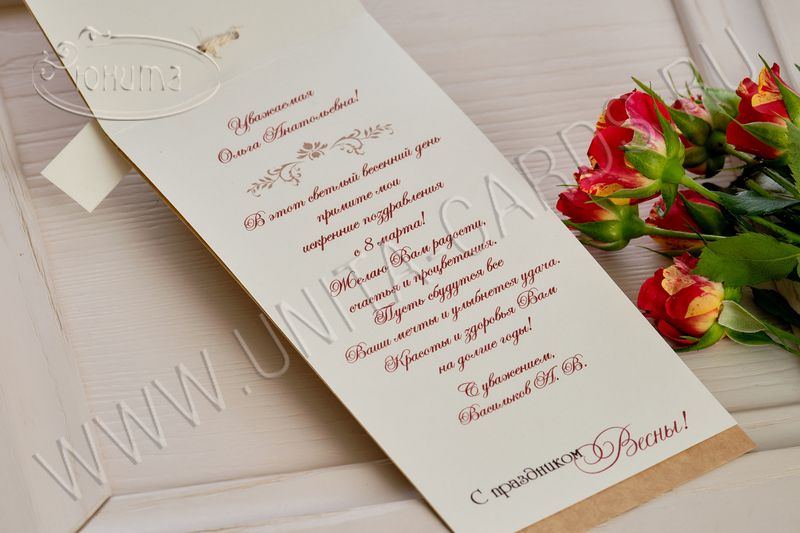 Юнита
Уважаемая
Ольга Анатольевна!
В этот светлый весенний день
примите мои
искренние поздравления
с 8 марта!
Желаю Вам радости,
счастья и процветания.
Пусть сбудутся все
Ваши мечты и улыбнется удача.
Красоты и здоровья Вам
на долгие годы!
С уважением,
Васильков А. В.
С праздником Весны!
WWW.UNITA-CARDS.RU